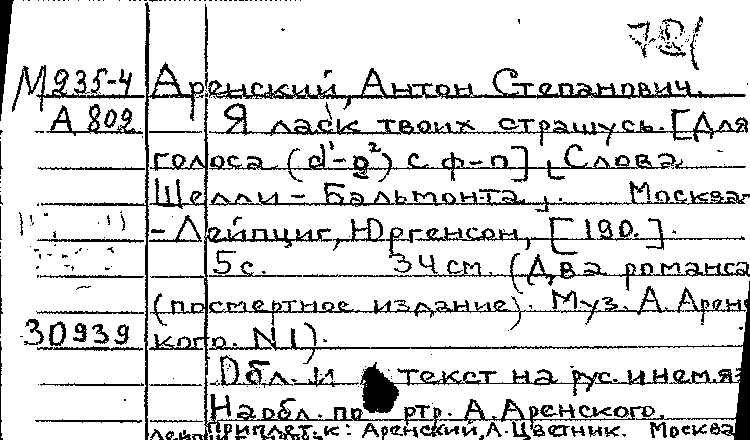 М235-4 Аренский, Антон Степанович.
А 802 Я ласк твоих страшусь. [Для
голоса (d¹-g²) с ф-п] [Слова
Шелли - Бальмонта]. Москва-
-Лейпциг, Юргенсон, [190.].
5 с. 34 см. (Два романса
(посмертное издание). Муз. А. Арен
30939 кого. N 1).
Обл. и текст на рус. и нем. я
На обл. портр. А. Аренского.
Приплет. к: Аренский, А. Цветник. Москва